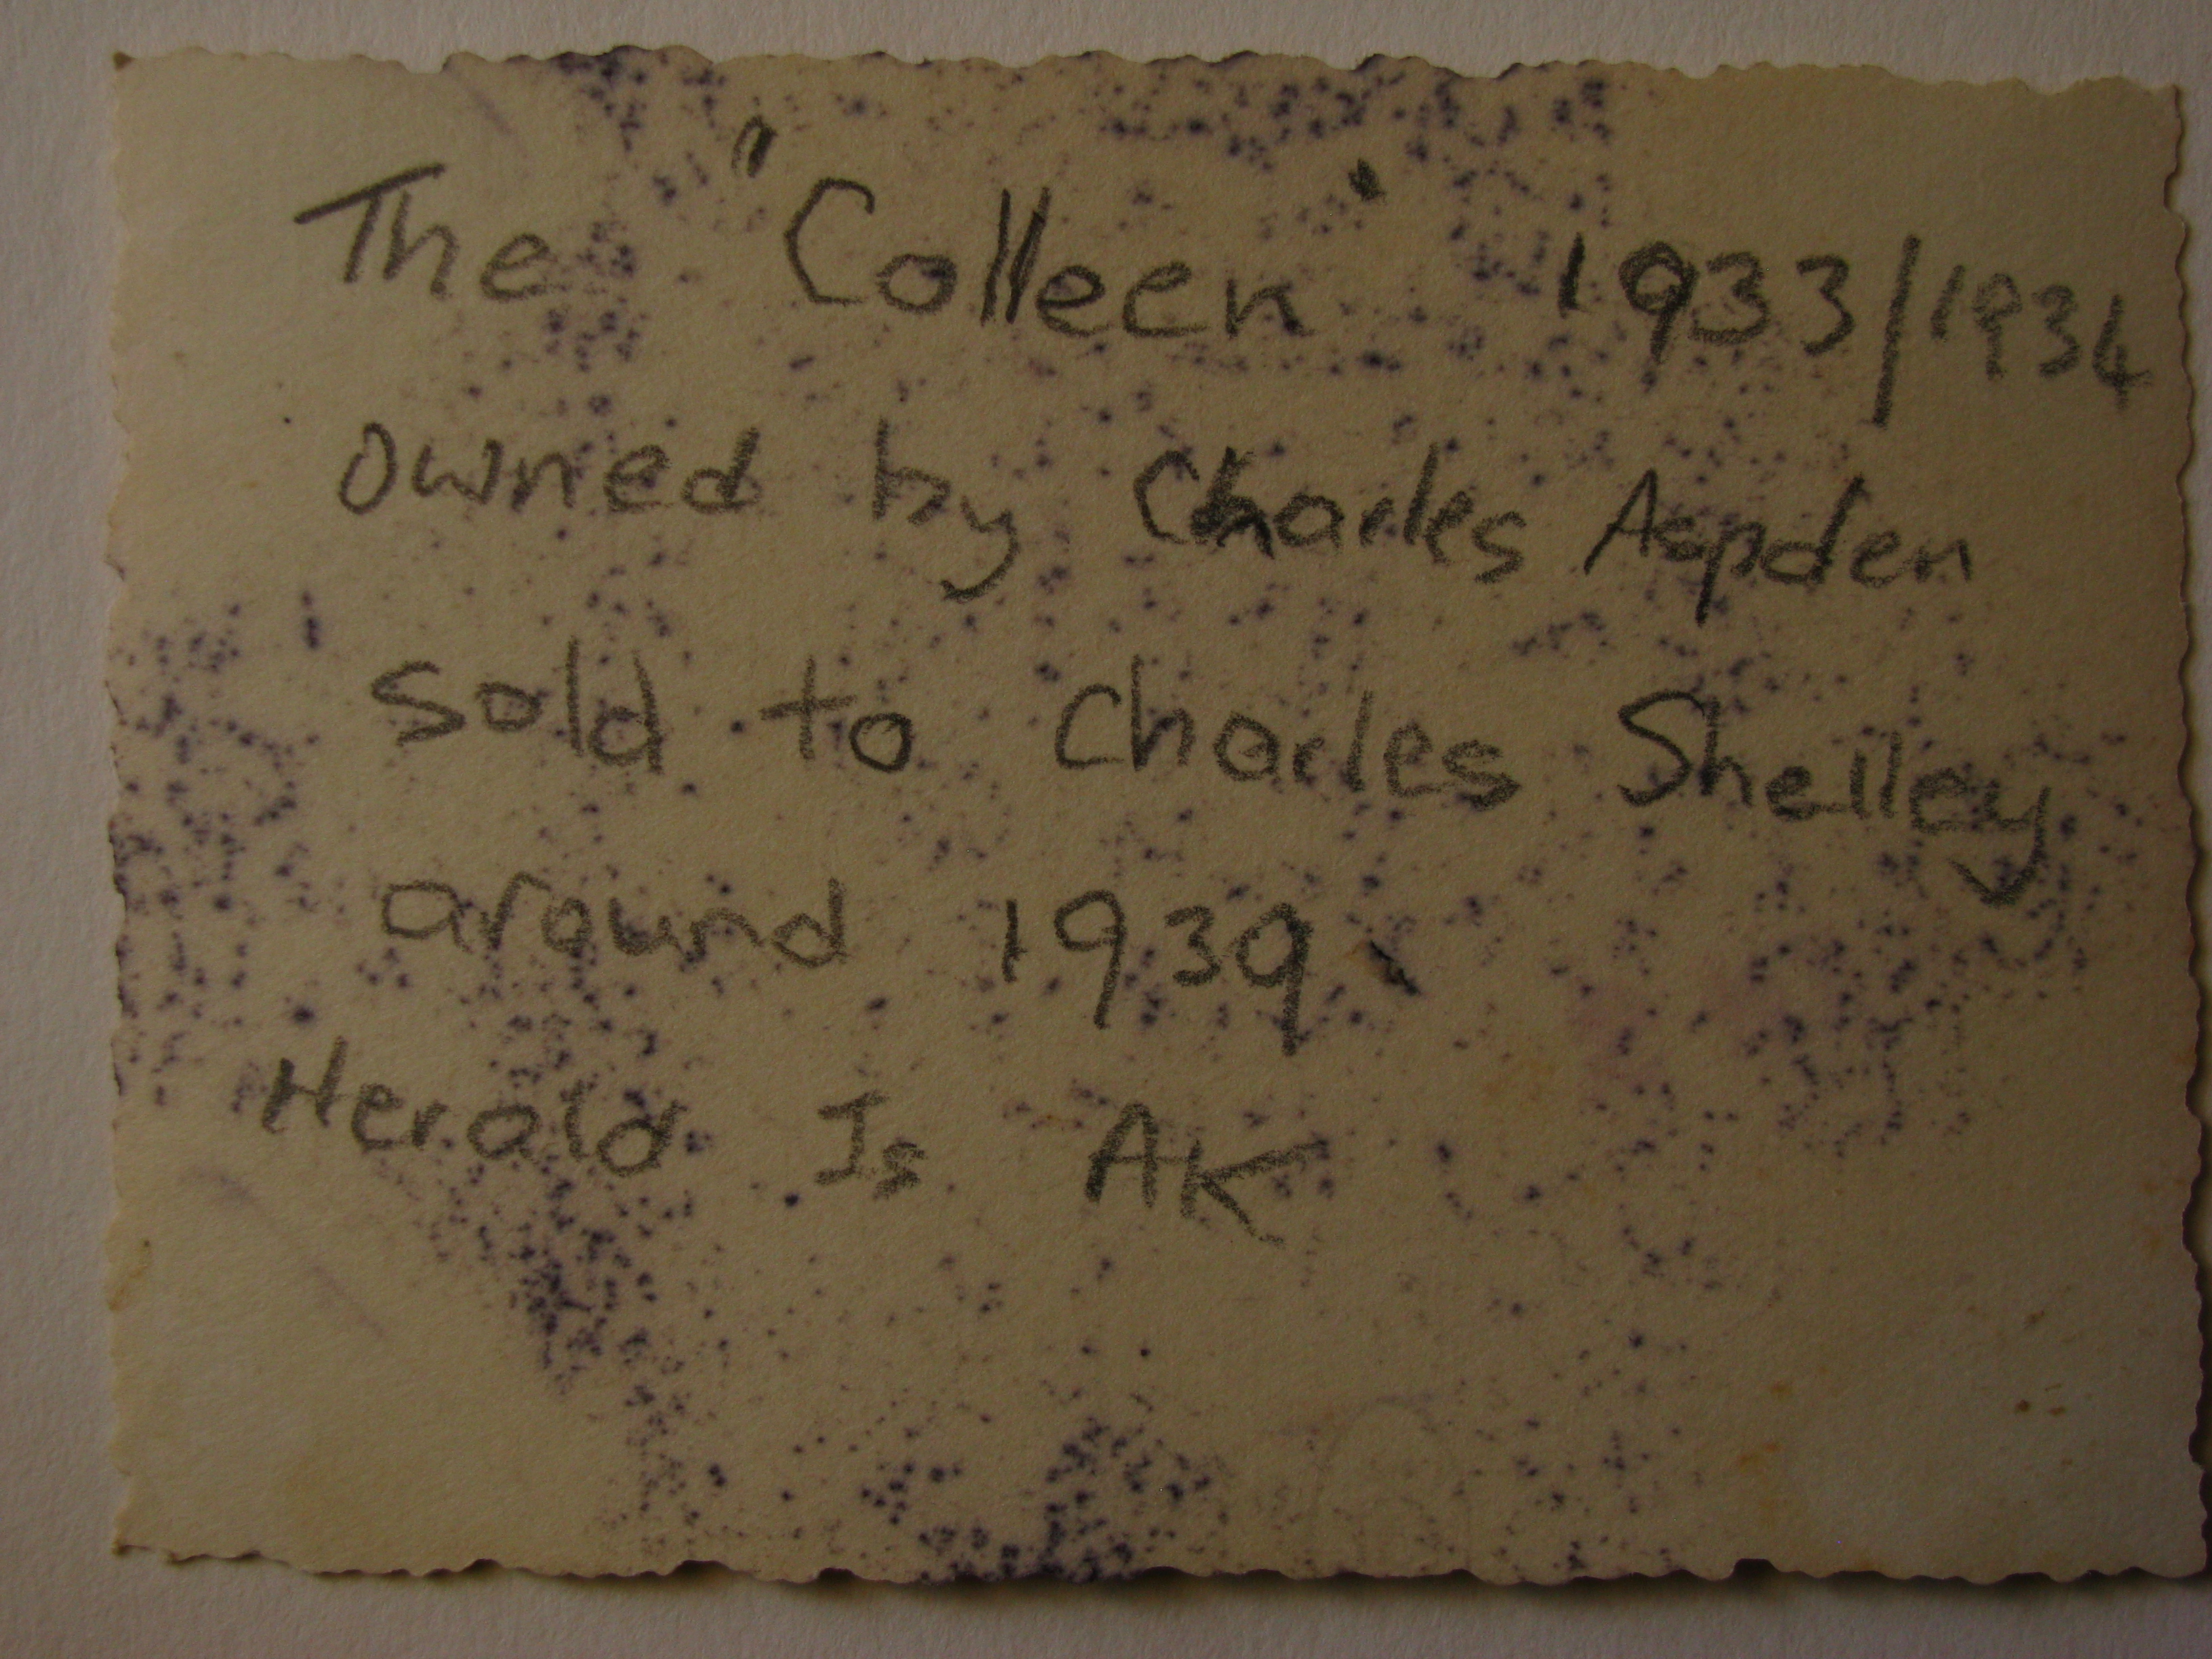 The "Colleen" 1933/1934
owned by Charles Aspden
sold to Charles Shelley
around 1939
Herald Is AK